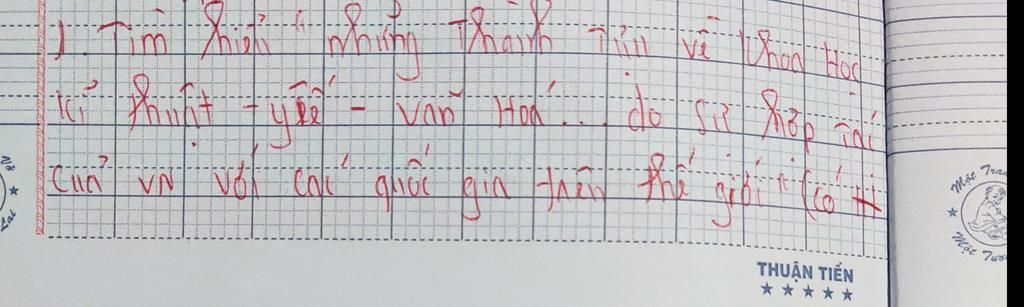 1. Tìm hiểu "những Thành Tựu về Khoa Học
Kĩ thuật - y tế - văn Hoá... do sự hợp tác
của VN với các quốc gia trên thế giới" (có
THUẬN TIẾN
Một Tra
Một Tươ
Nở
Lai